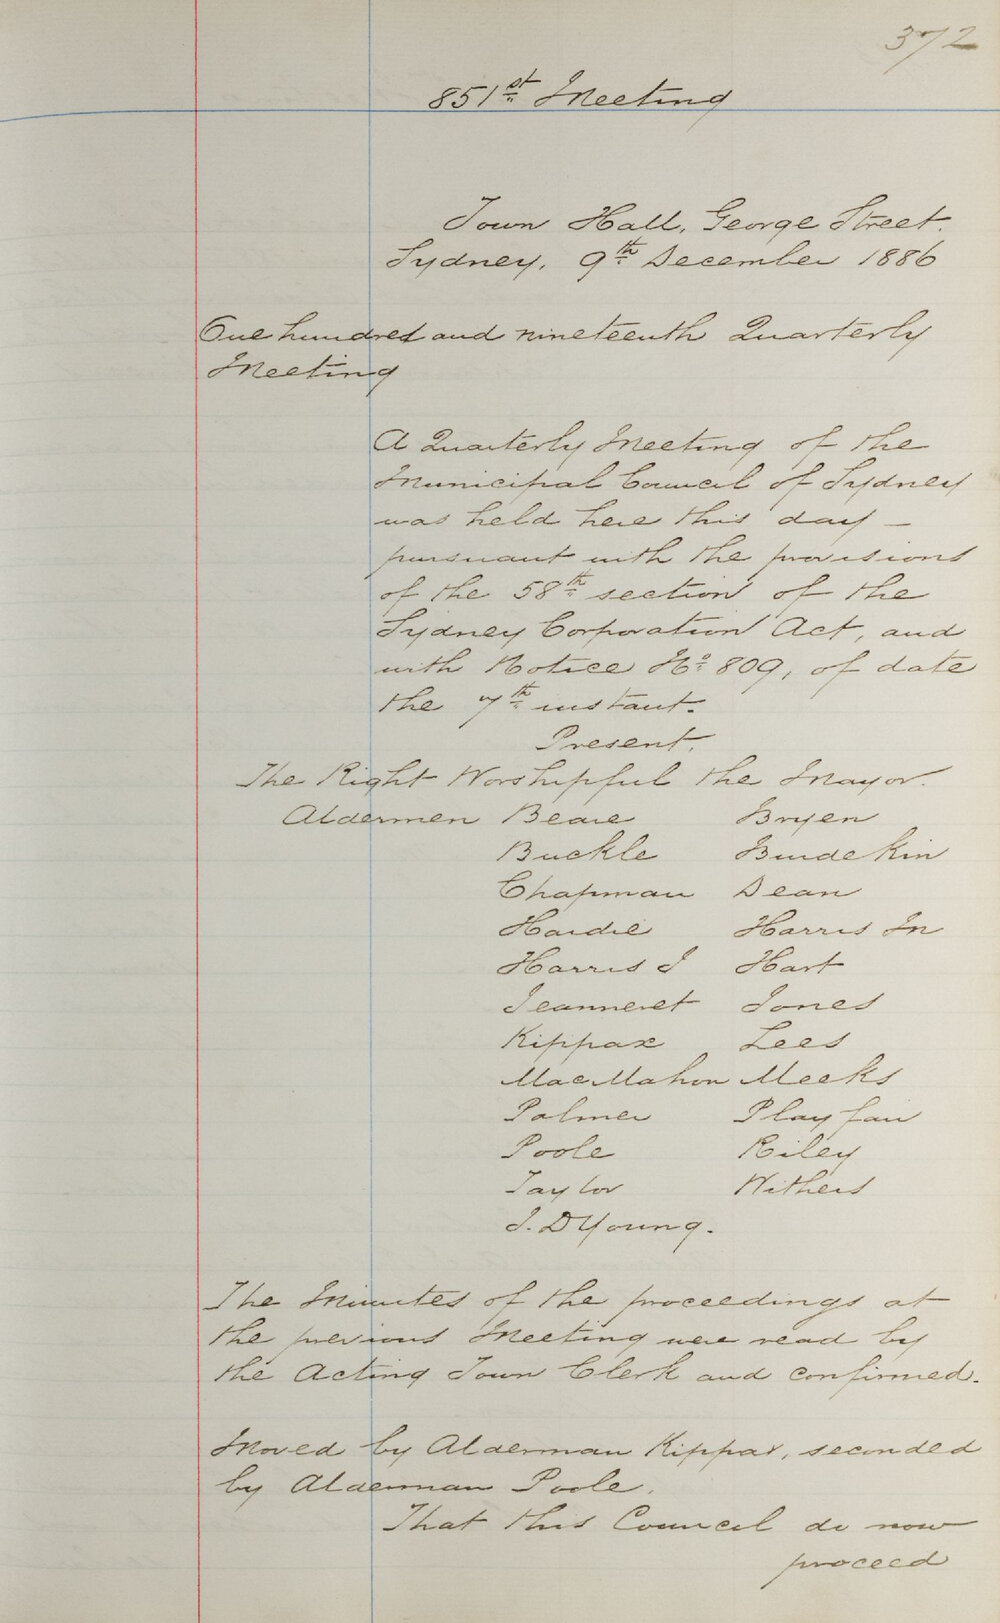 372
851st Meeting
Town Hall, George Street.
Sydney, 9th December 1886
One hundred and nineteenth Quarterly
Meeting
A Quarterly Meeting of the
Municipal Council of Sydney
was held here this day –
pursuant with the provisions
of the 58th section of the
Sydney Corporation Act, and
with Notice No 809, of date
the 7th instant.
Present.
The Right Worshipful the Mayor.
Aldermen Beare Bryen
Buckle Burdekin
Chapman Dean
Hardie Harris Jn
Harris J Hart
Jeanneret Jones
Kippax Lees
MacMahon Meeks
Palmer Playfair
Poole Riley
Taylor Withers
J. D Young.
The Minutes of the proceedings at
the previous Meeting were read by
the Acting Town Clerk and confirmed.
Moved by Alderman Kippax, seconded
by Alderman Poole.
That this Council do now
proceed